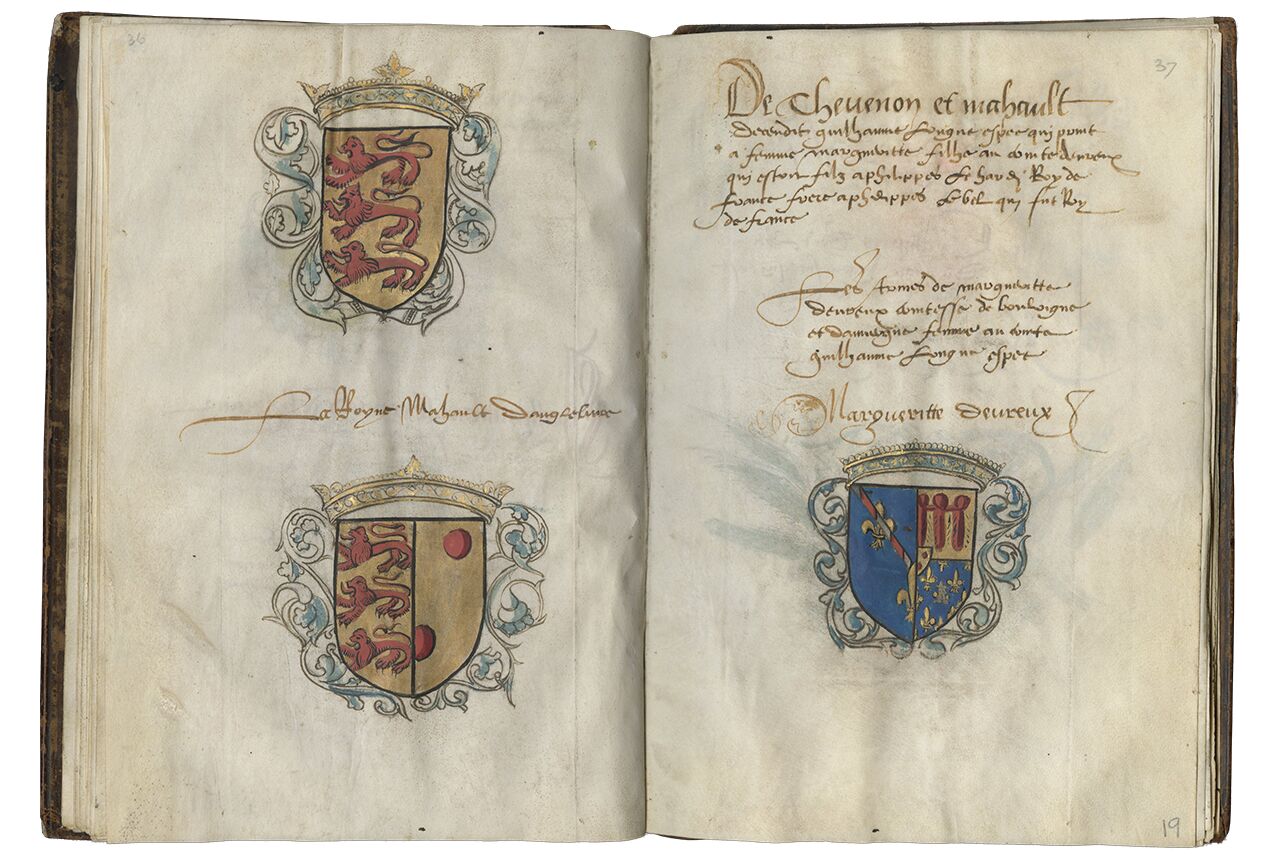 36
La Royne Mahault Dangleterre
37
De Chevenon et mahault
decendit guilhaume Longue espee qui print
a femme margueritte filhe au comte devreux
qui estoit filz a philippes Le hardi Roy de
france frere a philippes Le bel qui fut Roy
de france
Les Armes de margueritte
devreux comtesse de bouloigne
et dauvergne femme au comte
guilhaume Longue espee
Margueritte devreux
19